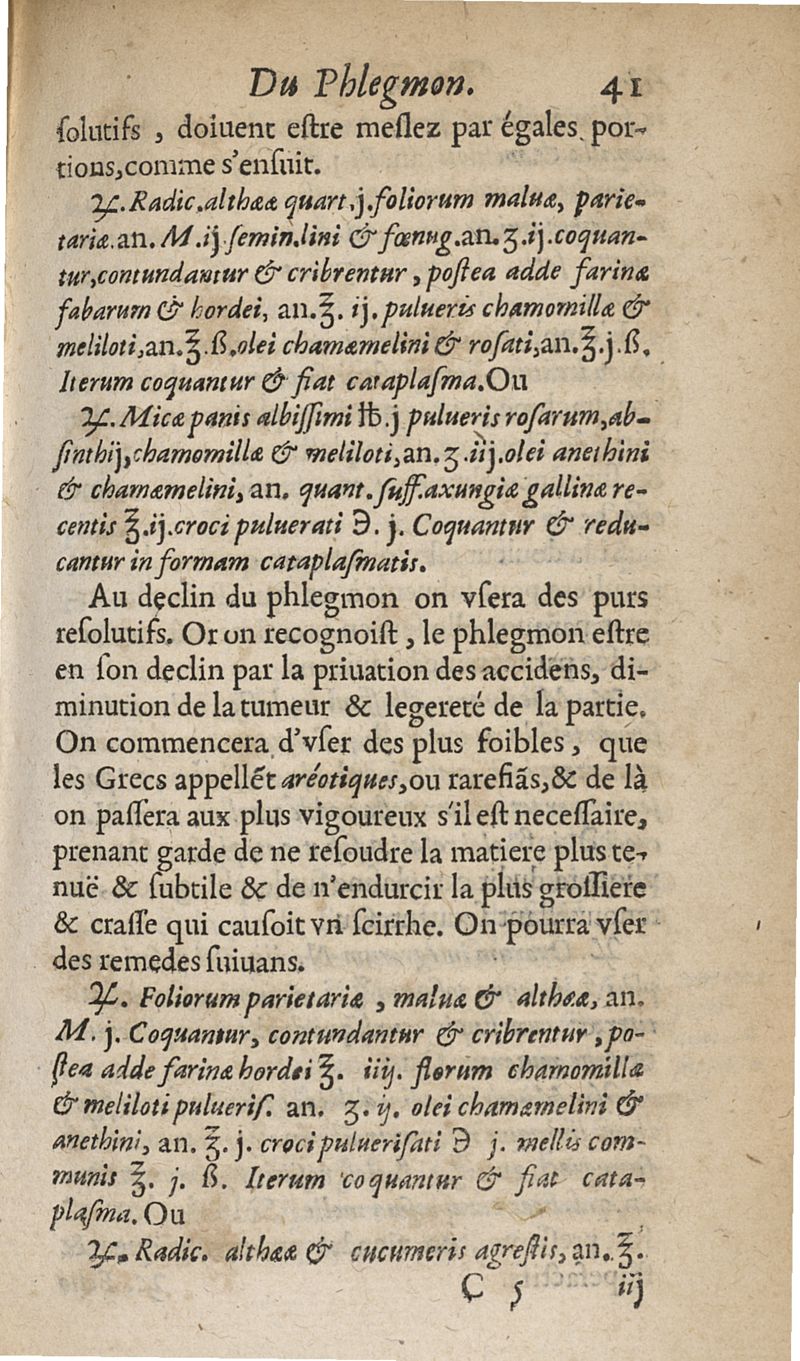 Du Phlegmon. 41
ſolutifs , doiuent eſtre meſlez par égales por-
tions,comme s'enſuit.
℞. Radic.althææ quart.j.foliorum maluæ, parie-
tariæ.an. M.ij.ſemin.lini & fœnug.an.ʒ.ij.coquan-
tur,contundantur & cribrentur , poſtea adde farinæ
fabarum & hordei, an.℥. ij. pulueris chamomillæ &
meliloti,an.℥.ß.olei chamæmelini & roſati,an.℥.j.ß.
Iterum coquantur & fiat cataplaſma.Ou
℞. Micæ panis albiſſimi ℔.j pulueris roſarum,ab-
ſinthij,chamomillæ & meliloti,an.ʒ.iij.olei anethini
& chamæmelini, an. quant.ſuff.axungiæ gallinæ re-
centis ℥.ij.croci puluerati ℈. j. Coquantur & redu-
cantur in formam cataplaſmatis.
Au declin du phlegmon on vſera des purs
reſolutifs. Or on recognoiſt , le phlegmon eſtre
en ſon declin par la priuation des accidens, di-
minution de la tumeur & legereté de la partie.
On commencera d'vſer des plus foibles , que
les Grecs appellẽt aréotiques,ou rarefiãs,& de là
on paſſera aux plus vigoureux s'il eſt neceſſaire,
prenant garde de ne reſoudre la matiere plus te-
nuë & ſubtile & de n'endurcir la plus groſſiere
& craſſe qui cauſoit vn ſcirrhe. On pourra vſer
des remedes ſuiuans.
℞. Foliorum parietariæ , maluæ & althææ, an.
M. j. Coquantur, contundantur & cribrentur , po-
ſtea adde farinæ hordei ℥. iiij. florum chamomillæ
& meliloti pulueriſ. an. ʒ. ij. olei chamæmelini &
anethini, an. ℥. j. croci pulueriſati ℈ j. mellis com-
munis ℥. j. ß. Iterum coquantur & fiat cata-
plaſma. Ou
℞. Radic. althææ & cucumeris agreſtis, an. ℥.
C 5 iij